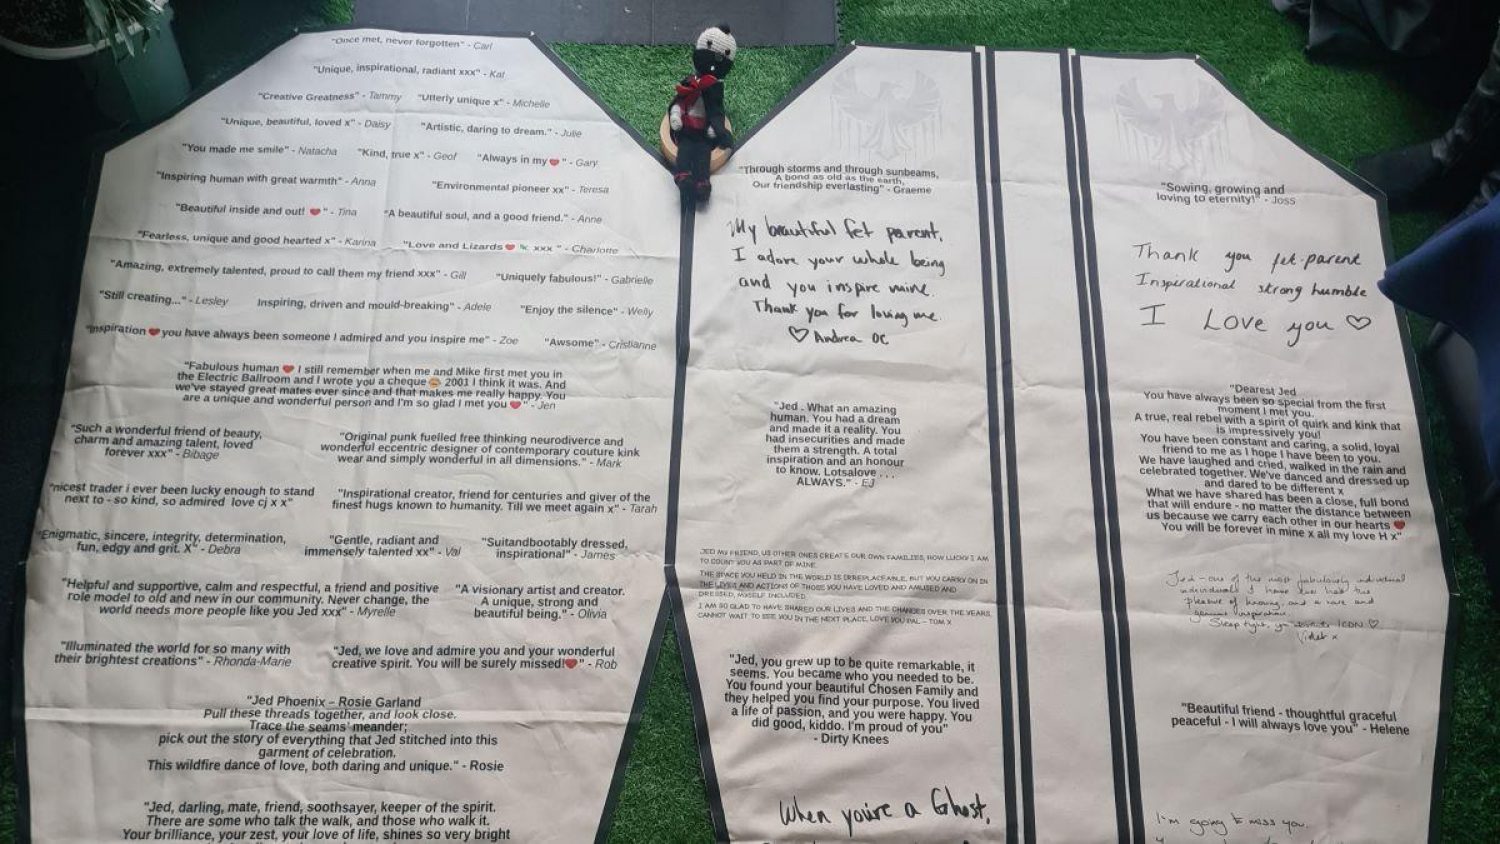 "Once met, never forgotten" - Carl
"Unique, inspirational, radiant xxx" - Kat
"Creative Greatness" - Tammy "Utterly unique x" - Michelle
"Unique, beautiful, loved x" - Daisy "Artistic, daring to dream." - Julie
"You made me smile" - Natacha "Kind, true x" - Geof "Always in my ❤" - Gary
"Inspiring human with great warmth" - Anna "Environmental pioneer xx" - Teresa
"Beautiful inside and out! ❤" - Tina "A beautiful soul, and a good friend." - Anne
"Fearless, unique and good hearted x" - Karina "Love and Lizards ❤ 🦎 xxx " - Charlotte
"Amazing, extremely talented, proud to call them my friend xxx" - Gill "Uniquely fabulous!" - Gabrielle
"Still creating..." - Lesley Inspiring, driven and mould-breaking" - Adele "Enjoy the silence" - Welly
"Inspiration ❤ you have always been someone I admired and you inspire me" - Zoe "Awsome" - Cristianne
"Fabulous human ❤ I still remember when me and Mike first met you in
the Electric Ballroom and I wrote you a cheque 😂 2001 I think it was. And
we've stayed great mates ever since and that makes me really happy. You
are a unique and wonderful person and I'm so glad I met you ❤" - Jen
"Such a wonderful friend of beauty,
charm and amazing talent, loved
forever xxx" - Bibage
"Original punk fuelled free thinking neurodiverce and
wonderful eccentric designer of contemporary couture kink
wear and simply wonderful in all dimensions." - Mark
"nicest trader i ever been lucky enough to stand
next to - so kind, so admired love cj x x"
"Inspirational creator, friend for centuries and giver of the
finest hugs known to humanity. Till we meet again x" - Tarah
"Enigmatic, sincere, integrity, determination,
fun, edgy and grit. X" - Debra
"Gentle, radiant and
immensely talented xx" - Val
"Suitandbootably dressed,
inspirational" - James
"Helpful and supportive, calm and respectful, a friend and positive
role model to old and new in our community. Never change, the
world needs more people like you Jed xxx" - Myrelle
"A visionary artist and creator.
A unique, strong and
beautiful being." - Olivia
"Illuminated the world for so many with
their brightest creations" - Rhonda-Marie
"Jed, we love and admire you and your wonderful
creative spirit. You will be surely missed!❤" - Rob
"Jed Phoenix – Rosie Garland
Pull these threads together, and look close.
Trace the seams' meander;
pick out the story of everything that Jed stitched into this
garment of celebration.
This wildfire dance of love, both daring and unique." - Rosie
"Jed, darling, mate, friend, soothsayer, keeper of the spirit.
There are some who talk the walk, and those who walk it.
Your brilliance, your zest, your love of life, shines so very bright
"Through storms and through sunbeams,
A bond as old as the earth,
Our friendship everlasting" - Graeme
My beautiful fet parent,
I adore your whole being
and you inspire mine.
Thank you for loving me.
♡ Andrea OC
"Jed . What an amazing
human. You had a dream
and made it a reality. You
had insecurities and made
them a strength. A total
inspiration and an honour
to know. Lotsalove . . .
ALWAYS." - EJ
JED MY FRIEND, US OTHER ONES CREATE OUR OWN FAMILIES, HOW LUCKY I AM
TO COUNT YOU AS PART OF MINE.
THE SPACE YOU HELD IN THE WORLD IS IRREPLACEABLE, BUT YOU CARRY ON IN
THE LIVES AND ACTIONS OF THOSE YOU HAVE LOVED AND AMUSED AND
DRESSED, MYSELF INCLUDED.
I AM SO GLAD TO HAVE SHARED OUR LIVES AND THE CHANGES OVER THE YEARS.
CANNOT WAIT TO SEE YOU IN THE NEXT PLACE, LOVE YOU PAL - TOM X
"Jed, you grew up to be quite remarkable, it
seems. You became who you needed to be.
You found your beautiful Chosen Family and
they helped you find your purpose. You lived
a life of passion, and you were happy. You
did good, kiddo. I'm proud of you"
- Dirty Knees
When you're a Ghost,
"Sowing, growing and
loving to eternity!" - Joss
Thank you fet-parent
Inspirational strong humble
I Love you ♡
"Dearest Jed
You have always been so special from the first
moment I met you.
A true, real rebel with a spirit of quirk and kink that
is impressively you!
You have been constant and caring, a solid, loyal
friend to me as I hope I have been to you.
We have laughed and cried, walked in the rain and
celebrated together. We've danced and dressed up
and dared to be different x
What we have shared has been a close, full bond
that will endure - no matter the distance between
us because we carry each other in our hearts ❤
You will be forever in mine x all my love H x"
Jed - one of the most fabulously individual
individuals I have ever had the
pleasure of knowing, and a rare and
inspiration.
Sleep tight, ICON ♡
Violet x
"Beautiful friend - thoughtful graceful
peaceful - I will always love you" - Helene
I'm going to miss you.